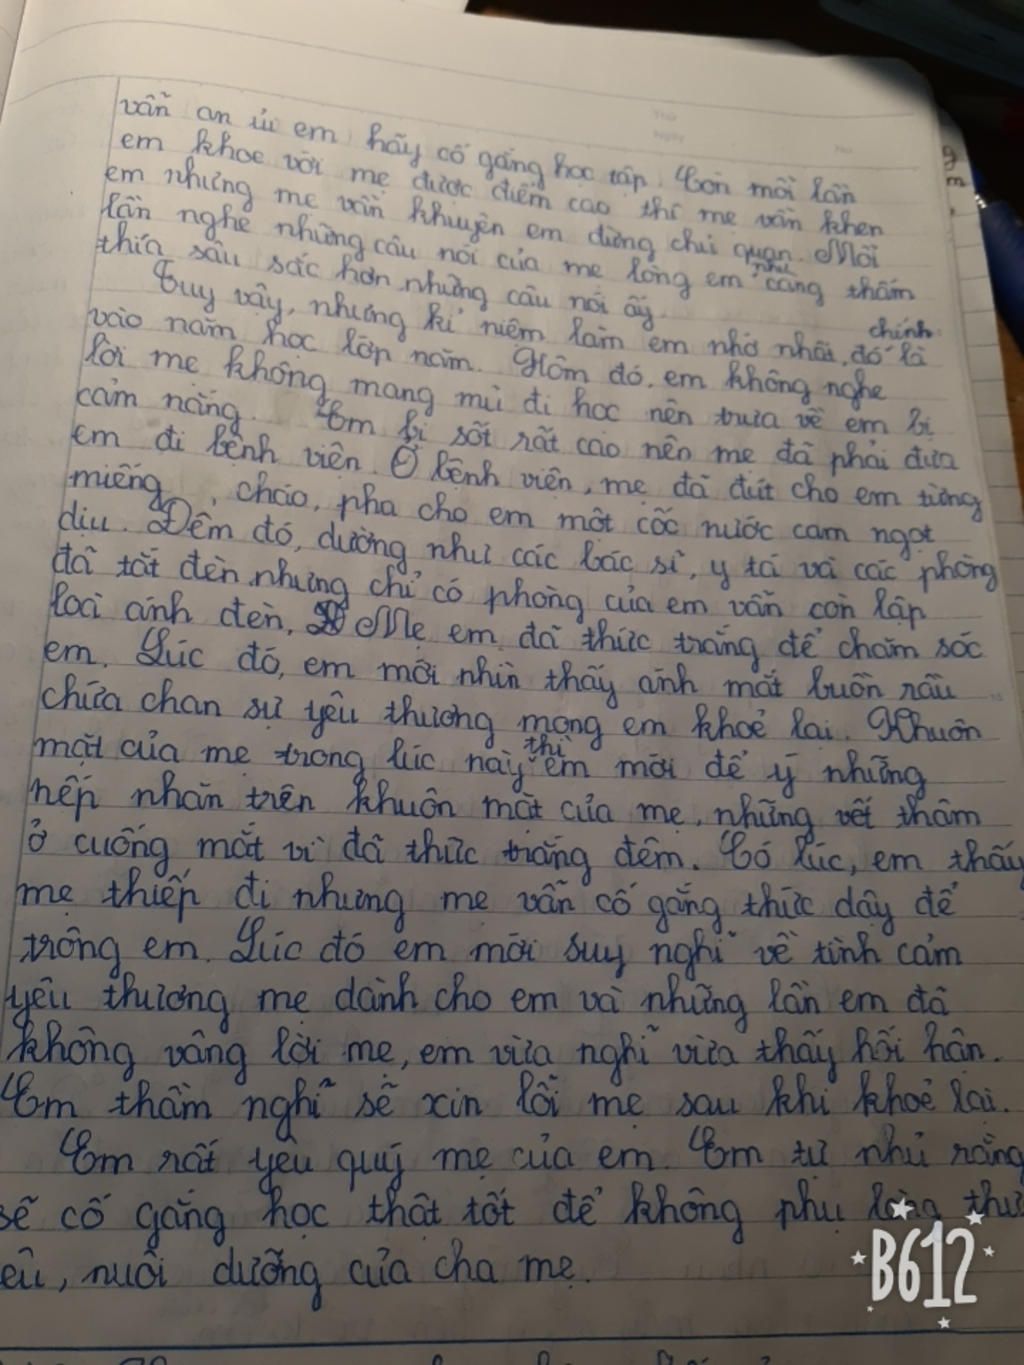 vẫn an ủi em hãy cố gắng học tập. Còn mỗi lần
em khoe với mẹ được điểm cao thì mẹ vẫn khen
em nhưng mẹ vẫn khuyên em đừng chủ quan. Mỗi
lần nghe những câu nói của mẹ lòng em như càng thấm
thía sâu sắc hơn những câu nói ấy.
Tuy vậy, nhưng kỉ niệm làm em nhớ nhất, đó chính là
vào năm học lớp năm. Hôm đó, em không nghe
lời mẹ không mang mũ đi học nên trưa về em bị
cảm nắng. Em bị sốt rất cao nên mẹ đã phải đưa
em đi bệnh viện. Ở bệnh viện, mẹ đã đút cho em từng
miếng cháo, pha cho em một cốc nước cam ngọt
dịu. Đêm đó, dường như các bác sĩ, y tá và các phòng
đã tắt đèn nhưng chỉ có phòng của em vẫn còn lập
loà ánh đèn. Mẹ em đã thức trắng để chăm sóc
em. Lúc đó, em mới nhìn thấy ánh mắt buồn rầu
chứa chan sự yêu thương mong em khoẻ lại. Khuôn
mặt của mẹ trong lúc này thì em mới để ý những
nếp nhăn trên khuôn mặt của mẹ, những vết thâm
ở cuống mắt vì đã thức trắng đêm. Có lúc, em thấy
mẹ thiếp đi nhưng mẹ vẫn cố gắng thức dậy để
trông em. Lúc đó em mới suy nghĩ về tình cảm
yêu thương mẹ dành cho em và những lần em đã
không vâng lời mẹ, em vừa nghĩ vừa thấy hối hận.
Em thầm nghĩ sẽ xin lỗi mẹ sau khi khoẻ lại.
Em rất yêu quý mẹ của em. Em tự nhủ rằng
sẽ cố gắng học thật tốt để không phụ lòng thư
êu, nuôi dưỡng của cha mẹ.
B612